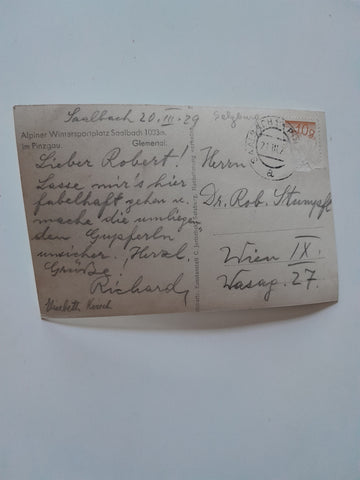 Saalbach 20.III.29 Salzburg
Alpiner Wintersportplatz Saalbach 1003m.
im Pinzgau. Glemental.
Lieber Robert!
Lasse mir's hier
fabelhaft gehen u.
mache die umliegen
den Gupferln
unsicher. Herzl.
Grüße
Richard
Elisabeth
Herrn
Dr. Rob. Stumpfl
Wien IX.
Wasag. 27.
10g
a